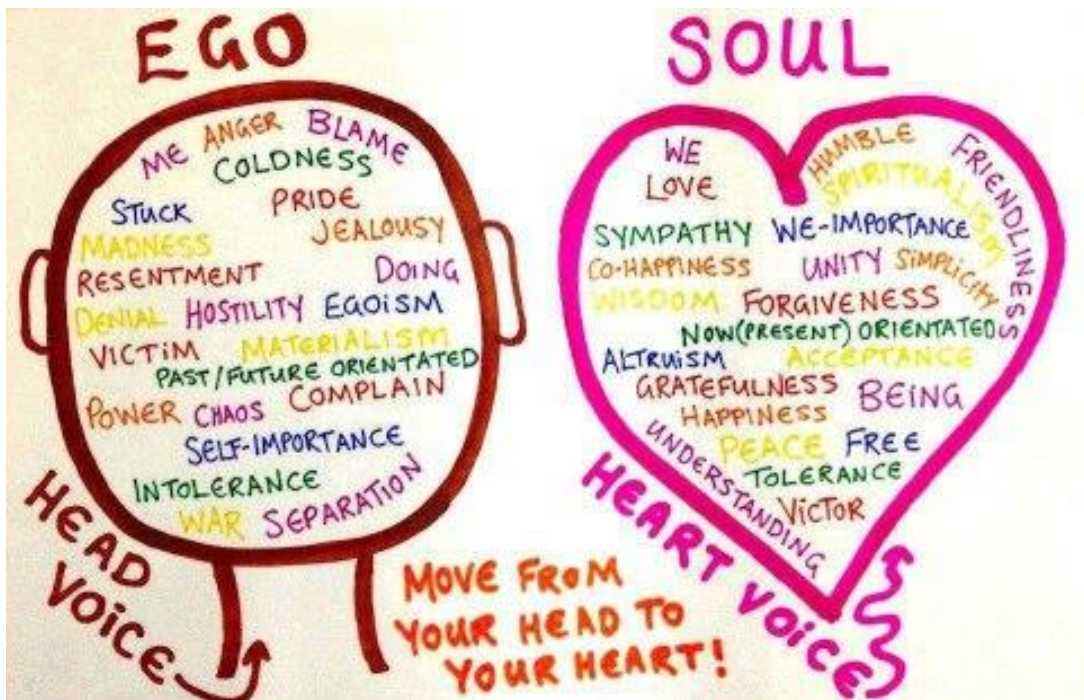 EGO
ME ANGER BLAME
COLDNESS
STUCK PRIDE
MADNESS JEALOUSY
RESENTMENT DOING
DENIAL HOSTILITY EGOiSM
VICTiM MATERIALISM
PAST/FUTURE ORIENTATED
POWER CHAOS COMPLAIN
SELF-IMPORTANCE
INTOLERANCE
WAR SEPARATION
HEAD
VOiCE
SOUL
WE HUMBLE FRIENDLINESS
LOVE SPIRITUALISM
SYMPATHY WE-IMPORTANCE
CO-HAPPINESS UNITY SiMPLICITY
WISDOM FORGIVENESS
NOW(PRESENT) ORIENTATED
ALTRUiSM ACCEPTANCE
GRATEFULNESS BEING
HAPPINESS
PEACE FREE
UNDERSTANDING TOLERANCE
ViCTOR
HEART VOiCE
MOVE FROM
YOUR HEAD TO
YOUR HEART!